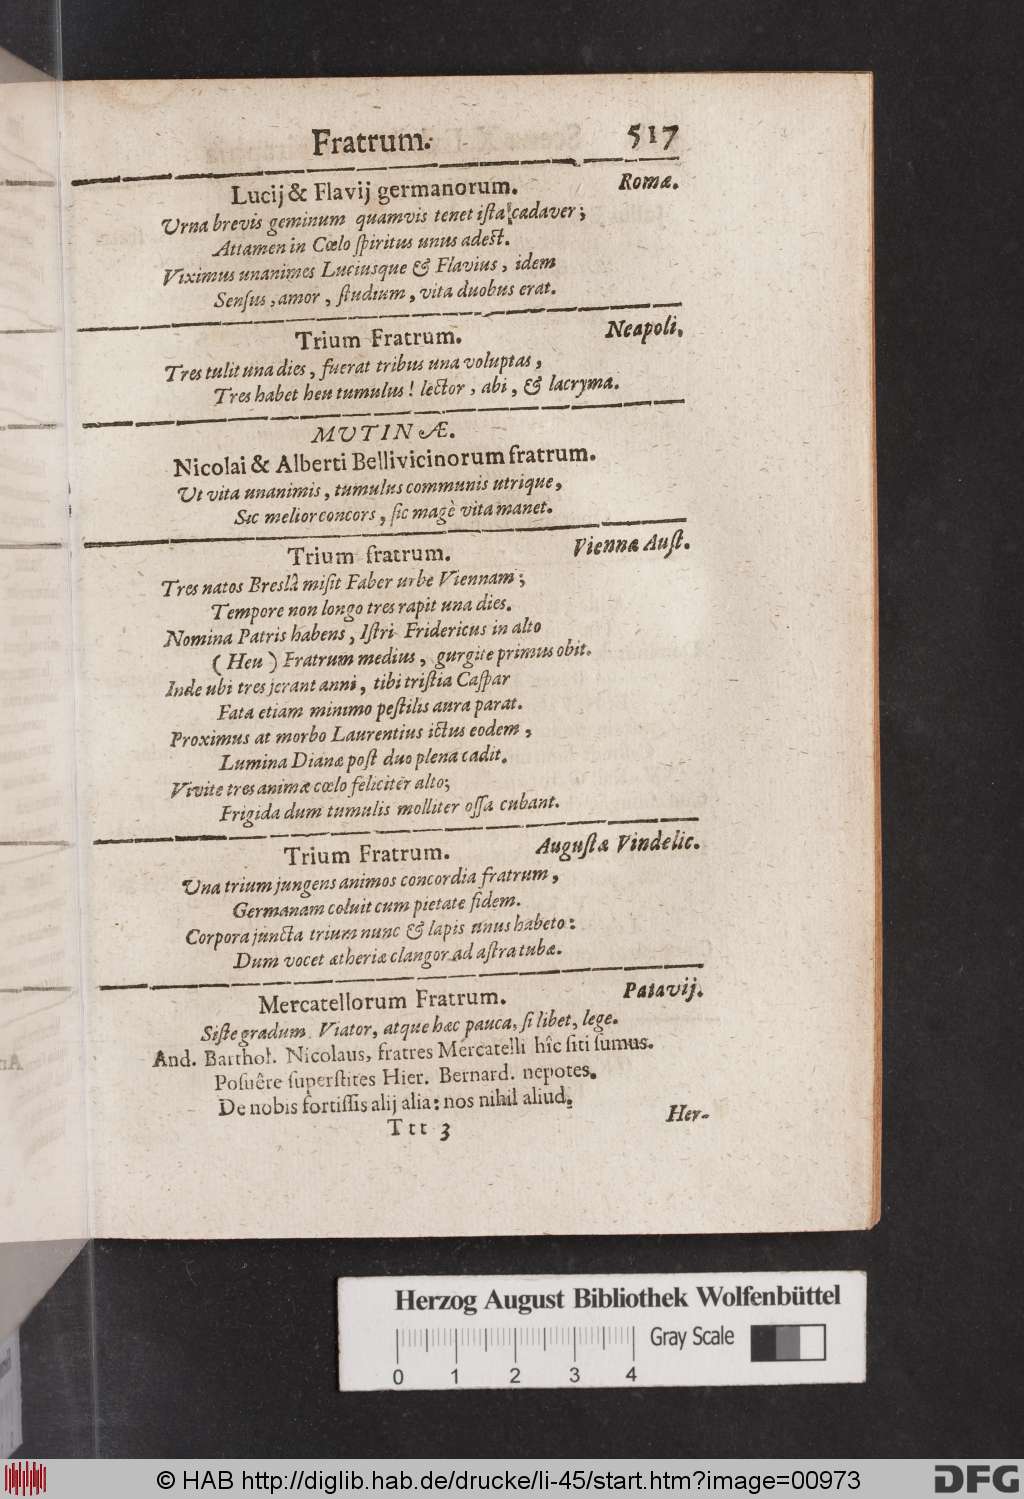 Fratrum. 517
Lucij & Flavij germanorum. Romæ.
Urna brevis geminum quamvis tenet ista cadaver;
Attamen in Cœlo spiritus unus adest.
Viximus unanimes Luciusque & Flavius, idem
Sensus, amor, studium, vita duobus erat.
Trium Fratrum. Neapoli.
Tres tulit una dies, fuerat tribus una voluptas,
Tres habet heu tumulus! lector, abi, & lacryma.
MUTINÆ.
Nicolai & Alberti Bellivicinorum fratrum.
Ut vita unanimis, tumulus communis utrique,
Sic melior concors, sic magè vita manet.
Trium fratrum. Viennæ Aust.
Tres natos Breslâ misit Faber urbe Viennam;
Tempore non longo tres rapit una dies.
Nomina Patris habens, Istri Fridericus in alto
(Heu) Fratrum medius, gurgite primus obit.
Inde ubi tres jerant anni, tibi tristia Caspar
Fata etiam minimo pestilis aura parat.
Proximus at morbo Laurentius ictus eodem,
Lumina Dianæ post duo plena cadit.
Vivite tres animæ cœlo feliciter alto;
Frigida dum tumulis molliter ossa cubant.
Trium Fratrum. Augustæ Vindelic.
Una trium jungens animos concordia fratrum,
Germanam coluit cum pietate fidem.
Corpora juncta trium nunc & lapis unus habeto:
Dum vocet ætheriæ clangor ad astra tubæ.
Mercatellorum Fratrum. Patavij.
Siste gradum Viator, atque hæc pauca, si libet, lege.
And. Barthol. Nicolaus, fratres Mercatelli hîc siti sumus.
Posuêre superstites Hier. Bernard. nepotes.
De nobis fortissis alij alia: nos nihil aliud.
Ttt 3 Her-
Herzog August Bibliothek Wolfenbüttel
Gray Scale
0 1 2 3 4
© HAB http://diglib.hab.de/drucke/li-45/start.htm?image=00973
DFG